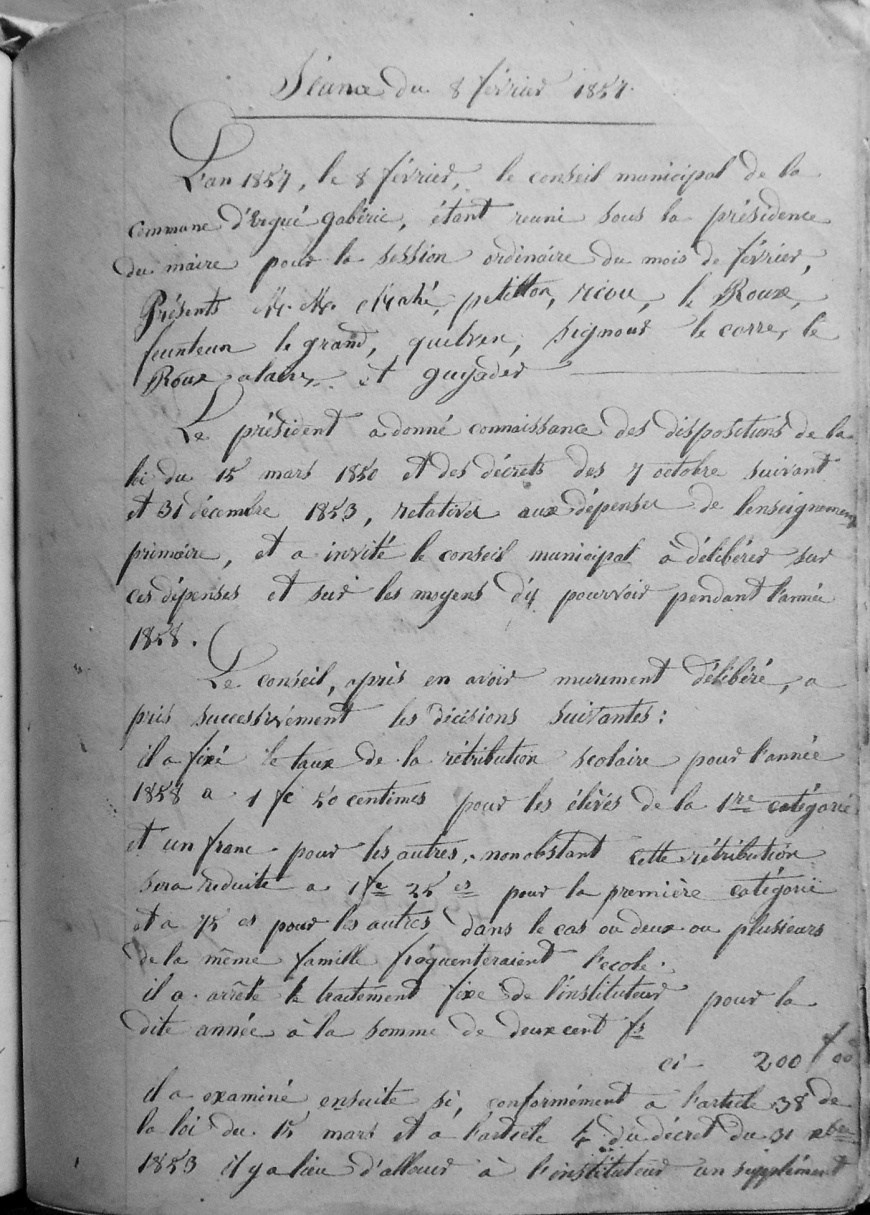 Séance du 8 février 1857.
L'an 1857, le 8 février, le conseil municipal de la
commune d'Ergué gabéric, étant reuni sous la présidence
du maire pour la session ordinaire du mois de février,
Présents M.M. Mahé, petillon, riou, le Roux,
feunteun le grand, quelven, signour le corre, le
Roux alain, et guyader
Le président a donné connaissance des dispositions de la
loi du 15 mars 1850 et des décrets des 7 octobre suivant
et 31 décembre 1853, relatives aux dépenses de l'enseignement
primaire, et a invité le conseil municipal à délibérer sur
ces dépenses et sur les moyens d'y pourvoir pendant l'année
1858.
Le conseil, après en avoir murement délibéré, a
pris successivement les décisions suivantes :
il a fixé le taux de la rétribution scolaire pour l'année
1858 a 1 fc 50 centimes pour les élèves de la 1re catégorie
et un franc pour les autres, nonobstant cette rétribution
sera reduite a 1 fc 25 cs pour la première catégorie
et a 75 cs pour les autres, dans le cas ou deux ou plusieurs
de la même famille fréquenteraient l'ecole.
il a arrêté le traitement fixe de l'instituteur pour la
dite année à la somme de deux cent fs
ci 200 f 00
il a examiné ensuite si, conformément a l'article 38 de
la loi du 15 mars et a l'article 4 du décret du 31 xbre
1853 il y a lieu d'allouer à l'instituteur un supplément